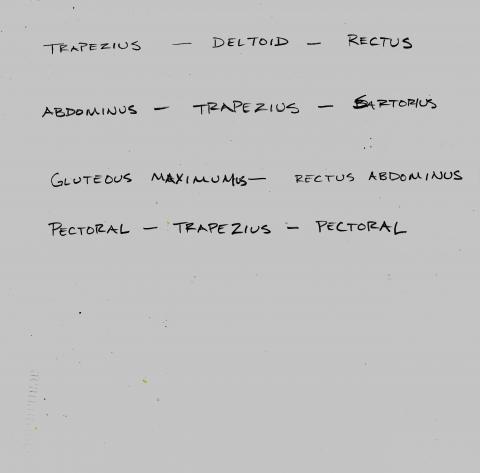 TRAPEZIUS — DELTOID — RECTUS
ABDOMINUS — TRAPEZIUS — SARTORIUS
GLUTEOUS MAXIMUMUS — RECTUS ABDOMINUS
PECTORAL — TRAPEZIUS — PECTORAL